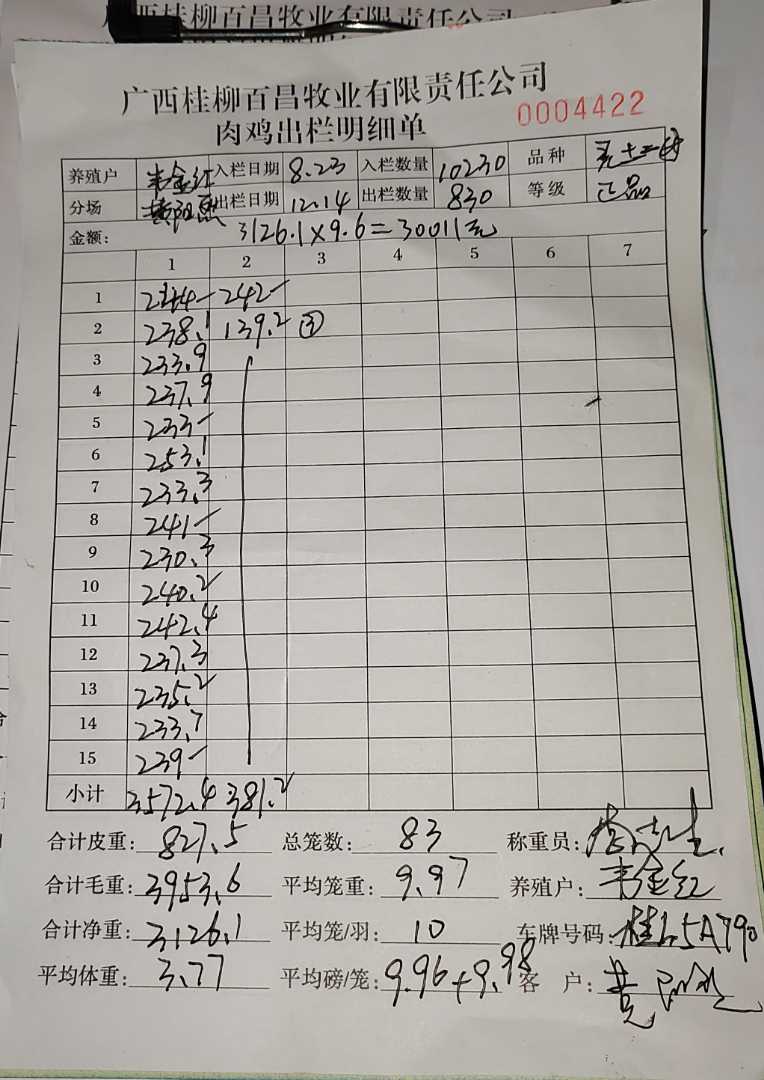 广西桂柳百昌牧业有限责任公司
广西桂柳百昌牧业有限责任公司
肉鸡出栏明细单
0004422
养殖户 韦金红 入栏日期 8.23 入栏数量 10230 品种
分场 出栏日期 12.14 出栏数量 830 等级 正品
金额: 3126.1×9.6=30011元
1 2 3 4 5 6 7
1 244- 242-
2 238.1 139.2 ③
3 233.9
4 237.9
5 233-
6 253.1
7 233.3
8 241-
9 230.3
10 240.2
11 242.4
12 237.3
13 235.2
14 233.7
15 239-
小计 3572.4 381.2
合计皮重: 827.5 总笼数: 83 称重员:
合计毛重: 3953.6 平均笼重: 9.97 养殖户: 韦金红
合计净重: 3126.1 平均笼/羽: 10 车牌号码:
平均体重: 3.77 平均磅/笼: 9.96+9.98 客 户: